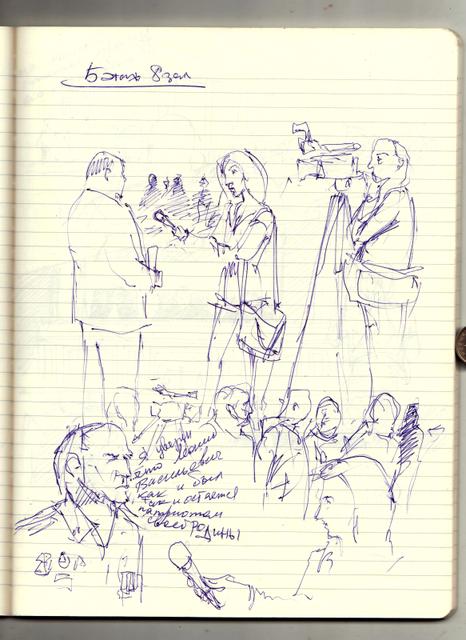 5 этаж 8 зал
я уверен
что Леонид
Васильевич
как и был
так и остается
патриотом
своей РОДИНЫ